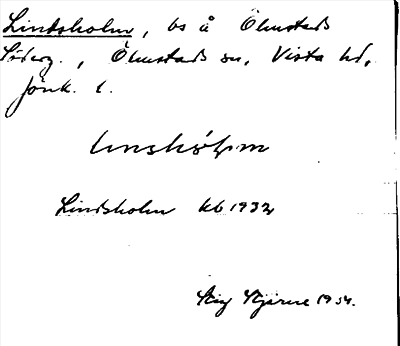 Lindsholm, bs å Ölmstads
Söderg., Ölmstads sn, Vista hd,
Jönk. l.
linshòl̥m
Lindsholm kb 1932
Stig Stjärne 1934.